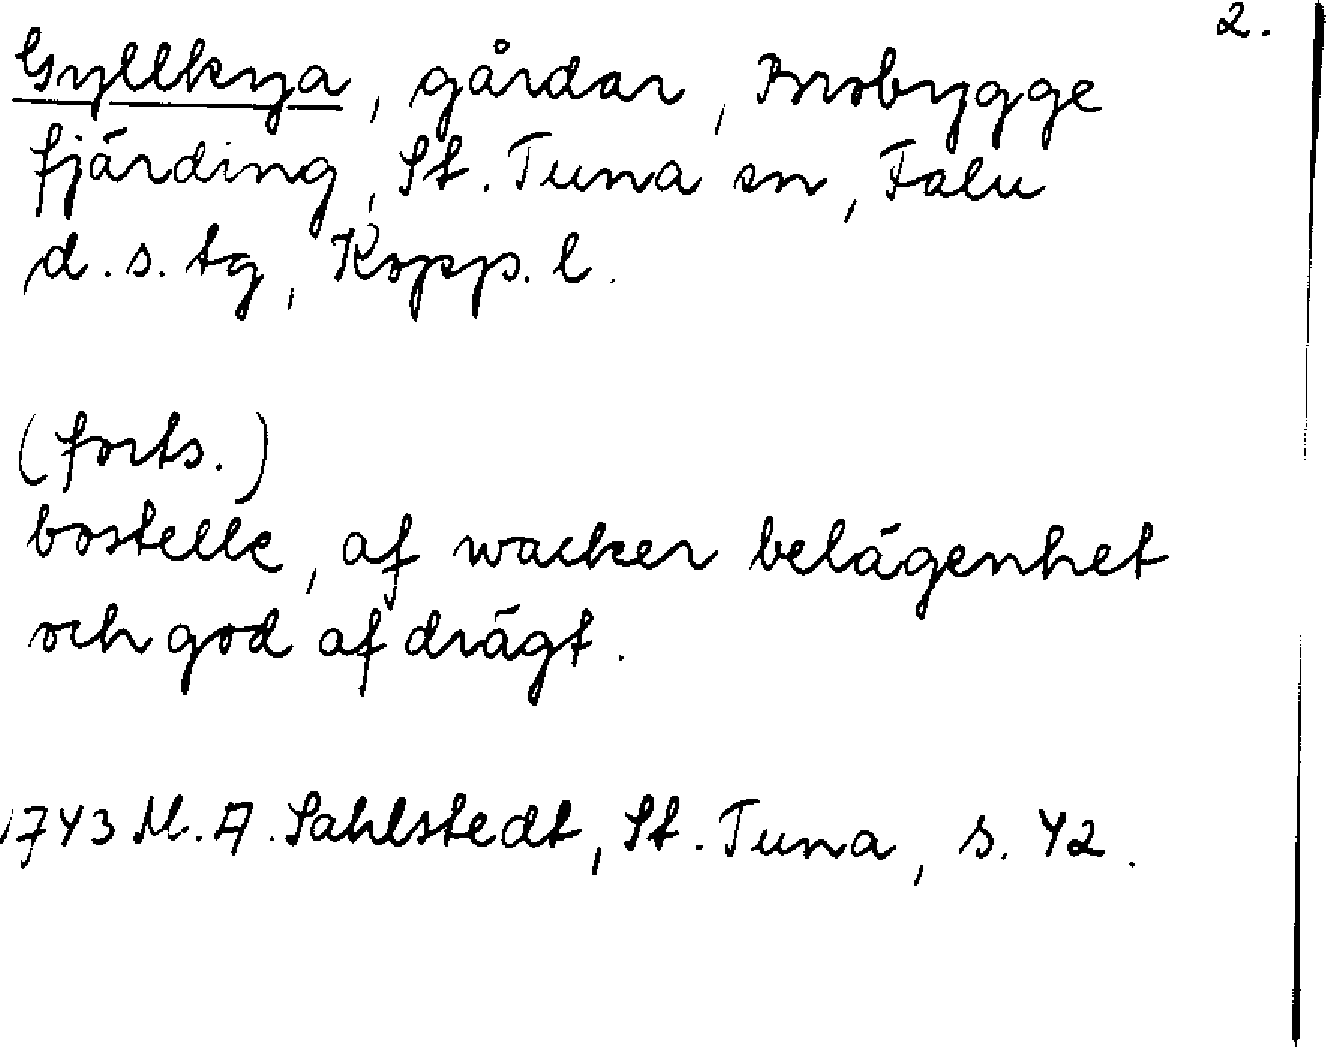 2.
Gyllkya, gårdar, Brobygge
fjärding, St. Tuna sn, Falu
d.s. tg, Kopp. l.
(forts.)
bostelle, af wacker belägenhet
och god afdrägt.
1743 M. A. Sahlstedt, St. Tuna, s. 42.